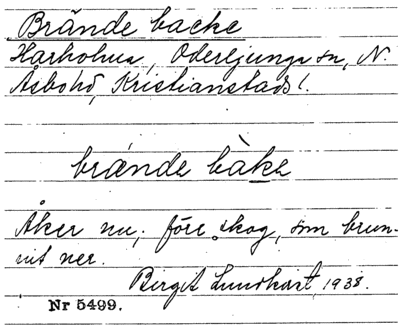 Brände backe
Hårkohus, Oderljunga sn, N.
Åsbohd, Kristianstads l.
brände bàke
Åker nu; före skog, som brun-
nit ner.
Birgit Lundkvist, 1938.
Nr 5499.